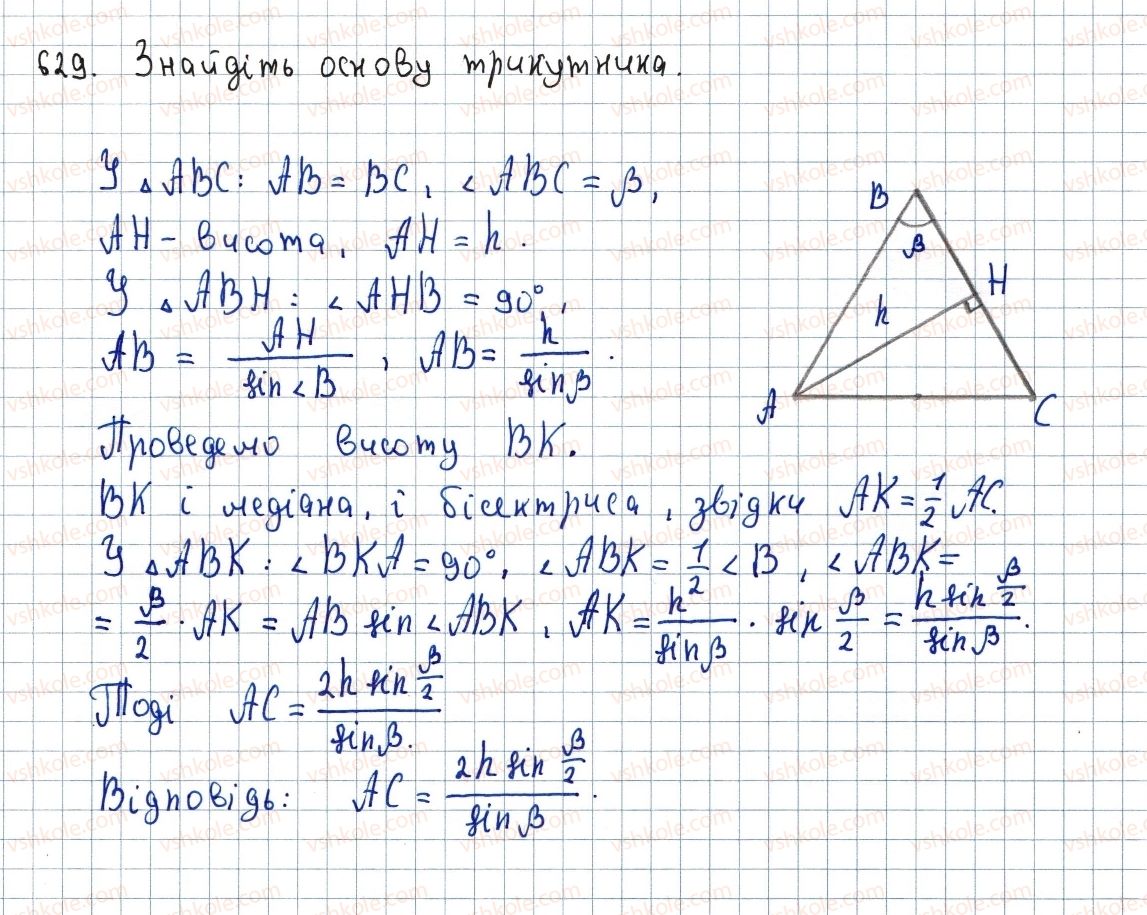 629. Знайдіть основу трикутника.
У △ABC: AB = BC, ∠ABC = β,
AH – висота, AH = h.
У △ABH: ∠AHB = 90°,
AB = AH / sin∠B, AB = h / sinβ.
Проведемо висоту BK.
BK і медіана, і бісектриса, звідки AK = 1/2 AC.
У △ABK: ∠BKA = 90°, ∠ABK = 1/2 ∠B, ∠ABK =
= β/2 · AK = AB sin∠ABK, AK = h / sinβ · sin β/2 = h sin β/2 / sinβ.
Тоді AC = 2h sin β/2 / sinβ.
Відповідь: AC = 2h sin β/2 / sinβ.
B
β
H
h
A
C
vshkole.com